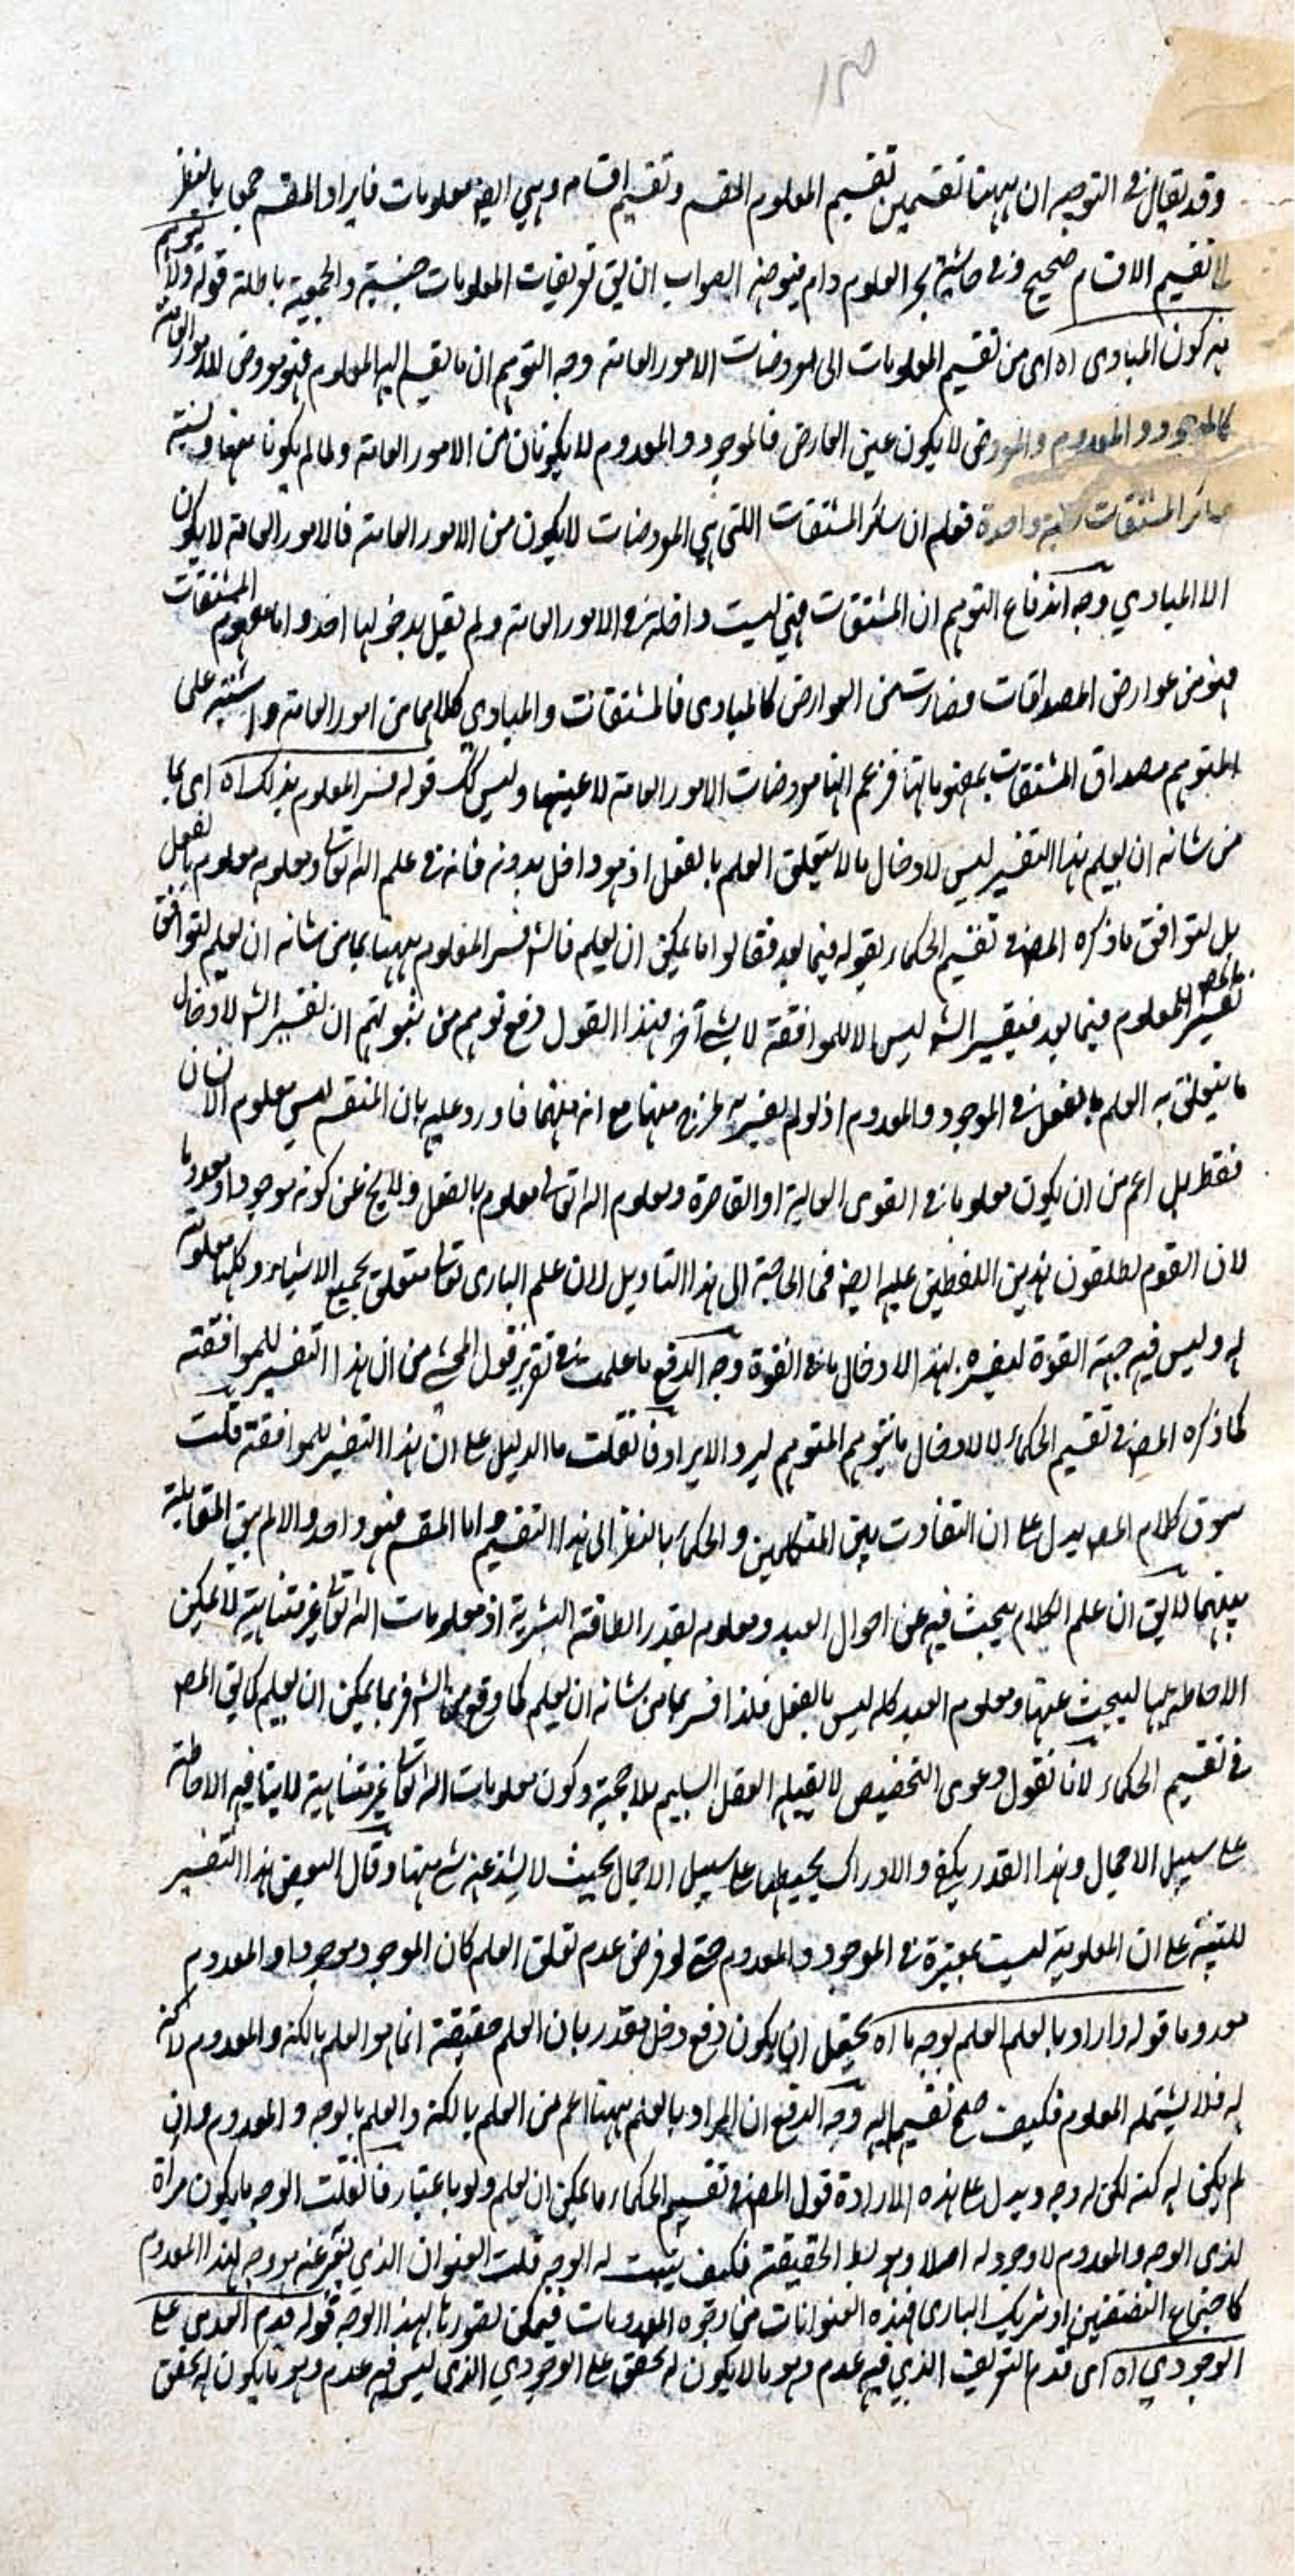 وقد يقال فى التوجيه ان ههنا تقسيمين تقسيم المعلوم المقسم وتقسيم اقسامه وهى ايضا معلومات فايراد المقسم جمعا بالنظر
الى تقسيم الاقسام صحيح وفى حاشية بحر العلوم دام فيوضه الصواب ان يق تعريفات المعلومات جنسية والجمعية باطلة قوله ولا يتوهم
منه كون المبادى اه اى من تقسيم المعلومات الى معروضات الامور العامة وجه التوهم ان ما يقسم اليه المعلوم فهو معروض للامور العامة
كالموجود والمعدوم والمعروض لا يكون عين العارض فالموجود والمعدوم لا يكونان من الامور العامة ولما لم يكونا منها ونسبة
سائر المشتقات واحدة فعلم ان سائر المشتقات اللتى هى المعروضات لا يكون من الامور العامة فالامور العامة لا يكون
الا المبادي وجه اندفاع التوهم ان المشتقات هى ليست داخلة فى الامور العامة ولم يقل بدخولها احد واما مفهوم المشتقات
فهو من عوارض المصداقات فصارت من العوارض كالمبادى فالمشتقات والمبادي كلاهما من امور العامة واشتبه على
المتوهم مصداق المشتقات بمفهوماتها فزعم انها معروضات الامور العامة لا عينها وليس كك قوله فسر المعلوم بذلك اه اى بما
من شانه ان يعلم هذا التفسير ليس لادخال ما لا يتعلق العلم بالفعل اذ هو داخل بدونه فانه فى علم الله تعالى ومعلومه معلوم بالفعل
بل لتوافق ما ذكره المص فى تقسيم الحكماء بقوله فيما بعد فقالوا ما يمكن ان يعلم فالش فسر المعلوم ههنا بما من شانه ان يعلم لتوافق
تفسير المص للمعلوم فيما بعد فتفسير الش ليس الا للموافقة لا لشئ آخر فهذا القول دفع توهم من يتوهم ان تفسير الش لادخال
ما يتعلق به العلم بالفعل فى الموجود والمعدوم اذ لو لم يفسر به لخرج منهما مع انه منهما فاورد عليه بان المقسم ليس معلوم الانسان
فقط بل اعم من ان يكون معلوما فى القوى العالية او القاصرة ومعلوم الله تعالى معلوم بالفعل ولا يخ عن كونه موجودا ومعدوما
لان القوم يطلقون هذين اللفظين عليه ايضا فما الحاجة الى هذا التاويل لان علم البارى تعالى متعلق بجميع الاشياء وكلها معلومة
له وليس فيه جهة القوة ليفسره بهذا لادخال ما فى القوة وجه الدفع ما علمت فى تقرير قول المحشى من ان هذا التفسير للموافقة
كما ذكره المص فى تقسيم الحكماء لا لادخال ما يتوهم المتوهم ليرد الايراد فان قلت ما الدليل على ان هذا التفسير للموافقة قلت
سوق كلام المص يدل على ان التفاوت بين المتكلمين والحكماء بالنظر الى هذا التقسيم واما المقسم فهو واحد والا لم يبق المقابلة
بينهما لا يق ان علم الكلام يبحث فيه عن احوال العبد ومعلومه بقدر الطاقة البشرية اذ معلومات الله تعالى غير متناهية لا يمكن
الاحاطة بها ليبحث عنها ومعلوم العبد كله ليس بالفعل فلذا فسر بما من شانه ان يعلم كما وقع من الش او بما يمكن ان يعلم كما يق المص
فى تقسيم الحكماء لانا نقول دعوى التخصيص لا يقبله العقل السليم بلا حجة وكون معلومات الله تعالى غير متناهية لا ينافيه الاحاطة
على سبيل الاجمال وهذا القدر يكفى والادراك يحيطها على سبيل الاجمال بحيث لا يشذ عنه شئ منها وقال البعض هذا التفسير
للتنبيه على ان المعلومية ليست بمعتبرة فى الموجود والمعدوم حتى لو فرض عدم تعلق العلم كان الموجود موجودا والمعدوم
معدوما قوله واراد بالعلم العلم بوجه ما اه يحتمل ان يكون دفع دخل مقدر بان العلم حقيقة انما هو العلم بالكنه والمعدوم لا كنه
له فلا يشتمله المعلوم فكيف صح تقسيمه اليه وجه الدفع ان المراد بالعلم ههنا اعم من العلم بالكنه والعلم بالوجه والمعدوم وان
لم يكن له كنه لكن له وجه ويدل على هذه الارادة قول المص فى تقسيم الحكماء ما يمكن ان يعلم ولو باعتبار فان قلت الوجه ما يكون مرآة
لذى الوجه والمعدوم لا وجود له اصلا وهو الحقيقة فكيف يثبت له الوجه قلت العنوان الذي يعبر عنه هو وجه لهذا المعدوم
كاجتماع النقيضين او شريك البارى فهذه العنوانات من وجوه المعدومات فيمكن تصورها بهذا الوجه قوله قدم العدمى على
الوجودي اه اى قدم التعريف الذي فيه عدم وهو ما لا يكون له تحقق على الوجودي الذى ليس فيه عدم وهو ما يكون له تحقق